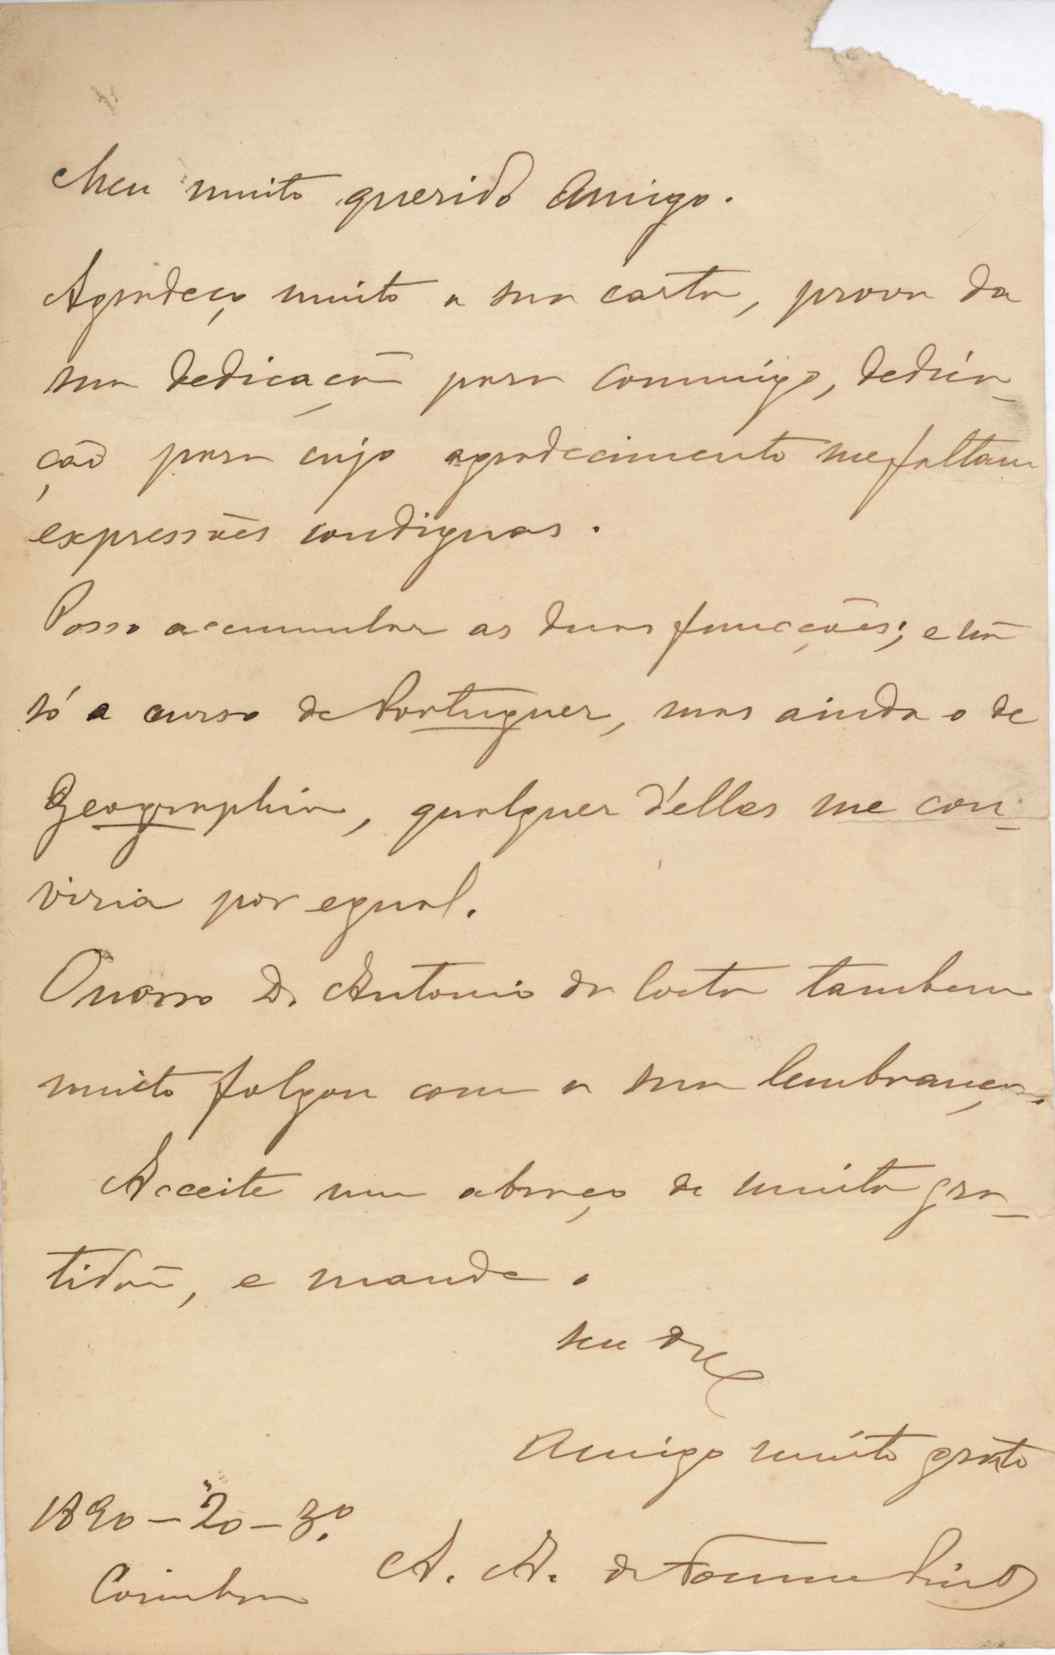 Meu muito querido Amigo.
Agradeço muito a sua carta, prova da
sua dedicação para commigo, dedica-
ção para cujo agradecimento me faltam
expressões condignas.
Posso accumular as duas funcções; e não
só o curso de Portuguez, mas ainda o de
Geographia, qualquer d'elles me con-
viria por egual.
O nosso D. Antonio da Costa tambem
muito folgou com a sua lembrança.
Acceite um abraço de muita gra-
tidão, e mande o
seu
Amigo muito grato
1890-20-3º
Coimbra A. A. da Fonseca Pinto